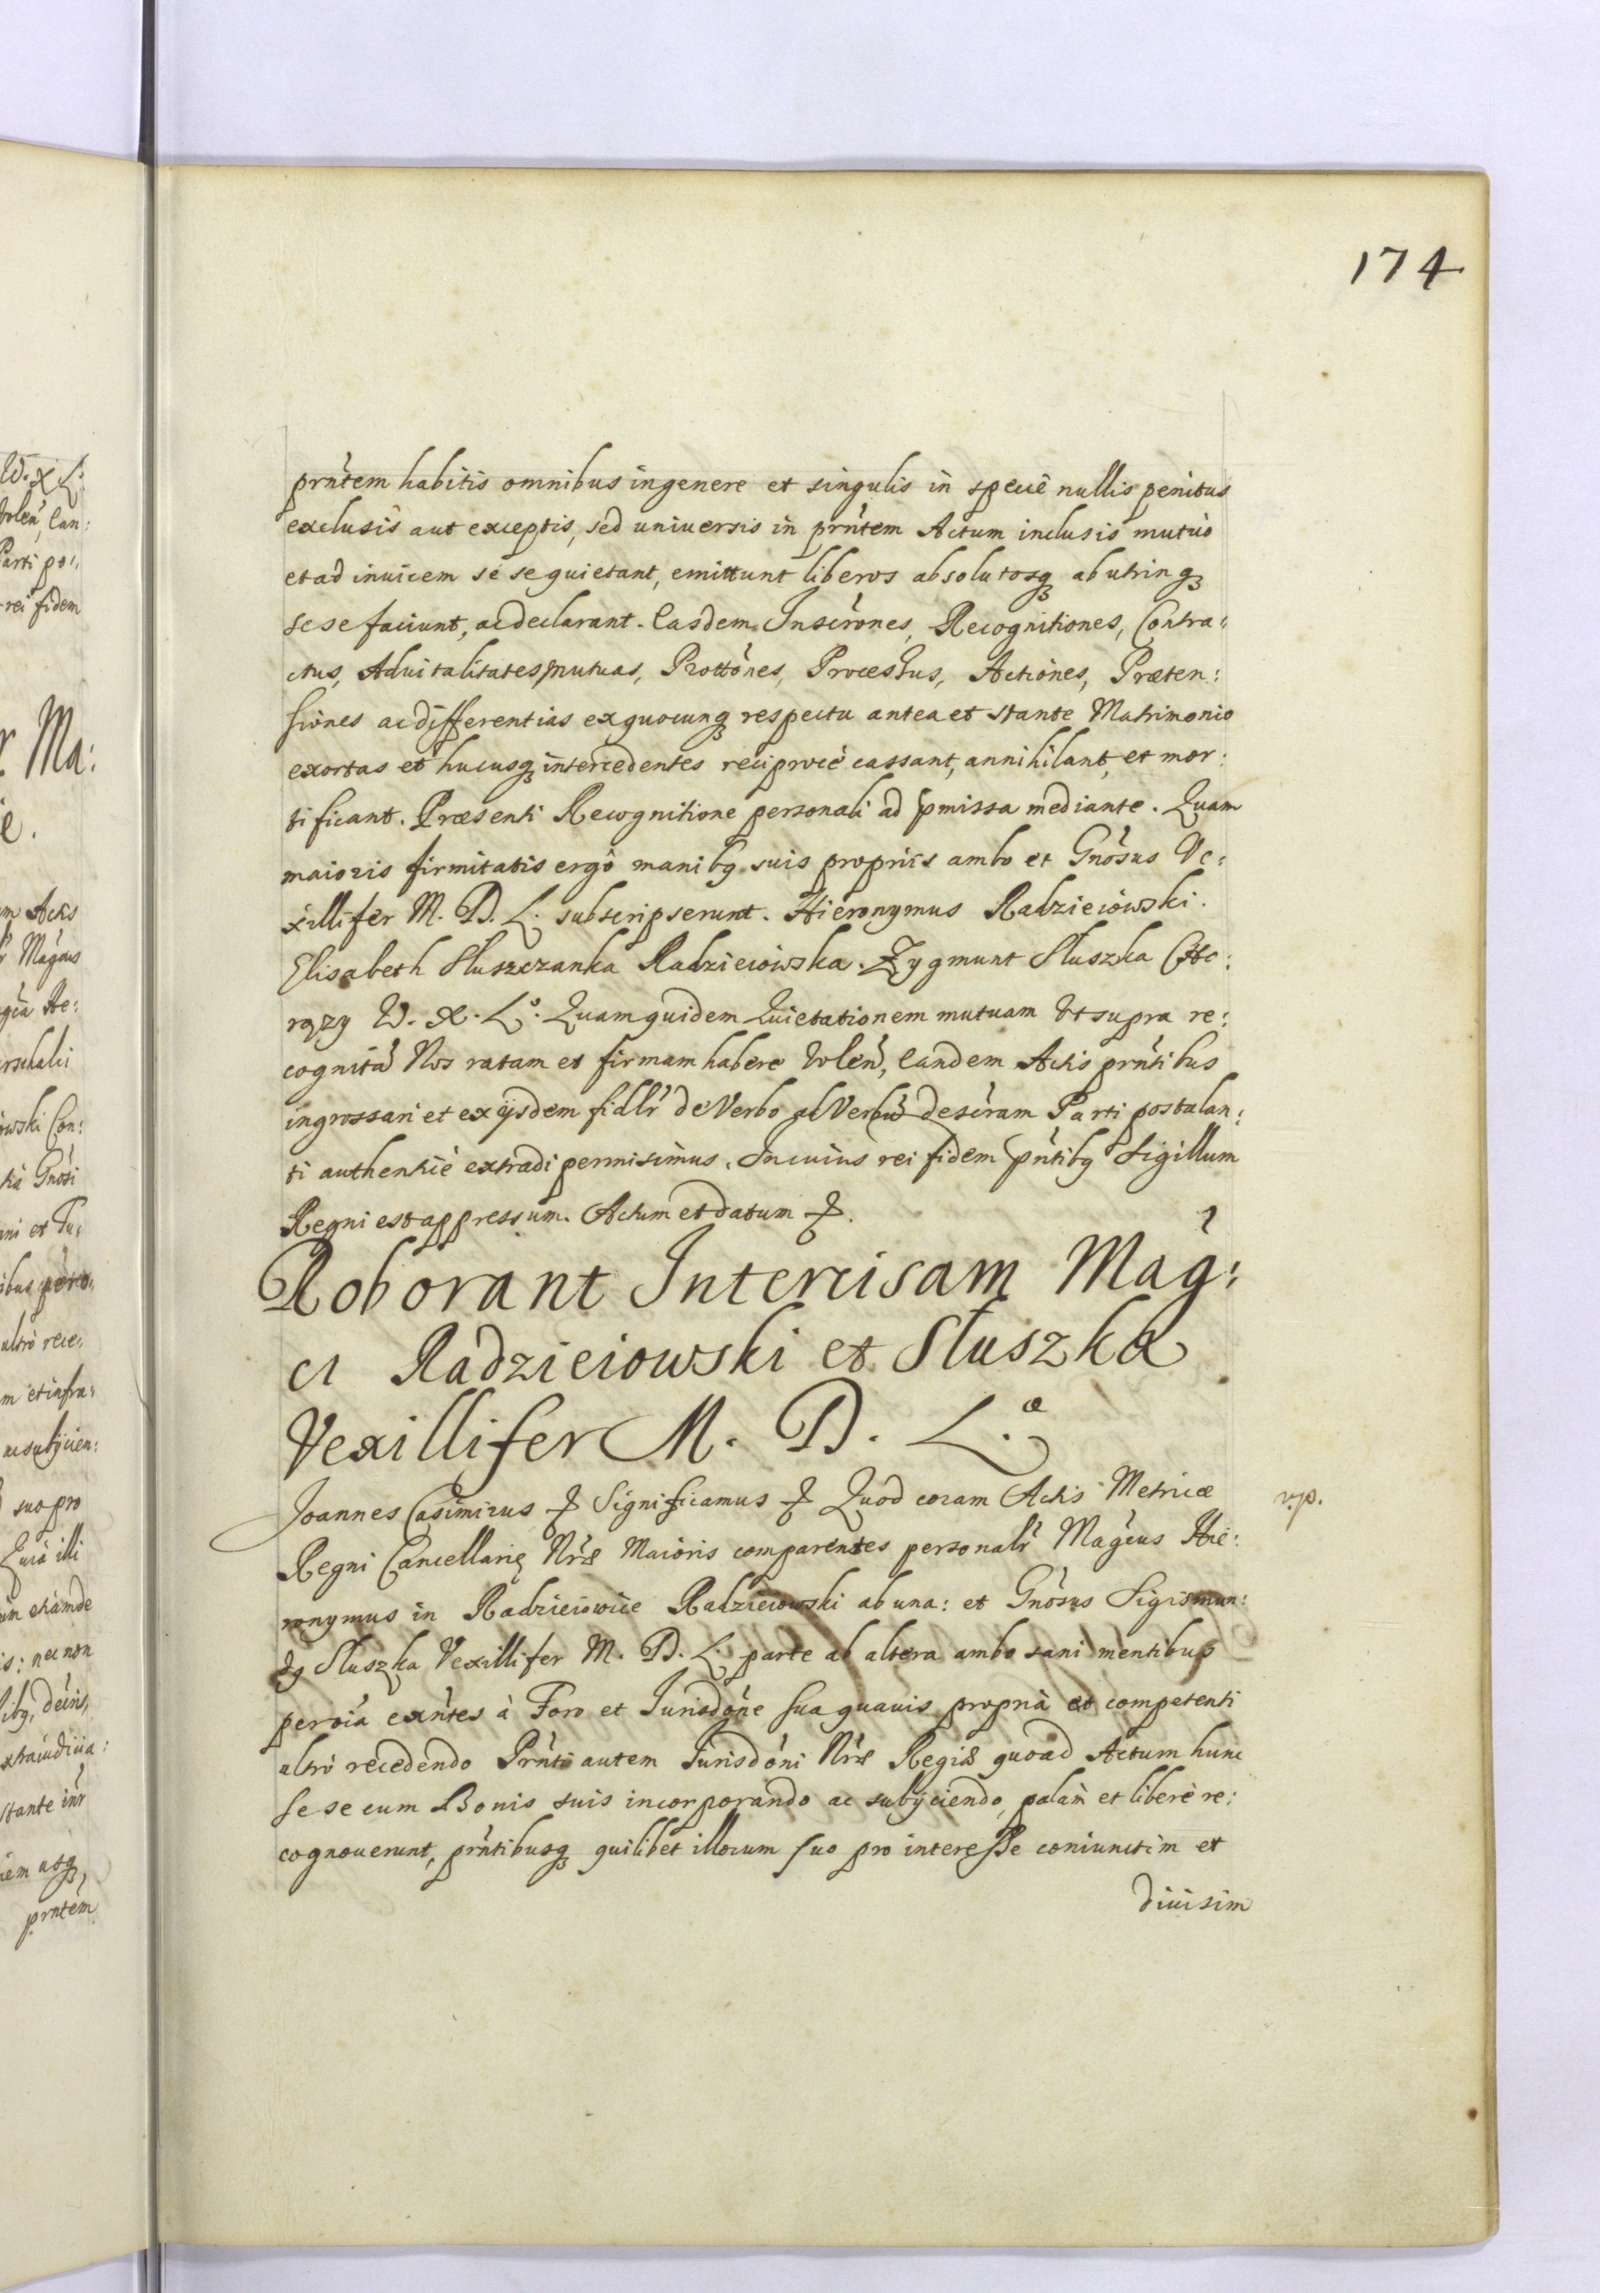 174
prńtem habitis omnibus ingenere et singulis in specie nullis penitus
exclusis aut exceptis, sed uniuersis in prńtem Actum inclusis mutuo
et ad inuicem se se quietant, emittunt liberos absolutosq₃ ab utrinq₃
sese faciunt, ac declarant. Easdem Inscrónes, Recognitiones, Contra„
ctus, Aduitalitates mutuas, Prottónes, Processus, Actiones, Præten:
siones ac differentias ex quocunq₃ respectu antea et stante Matrimonio
exortas et hucusq₃ intercedentes reciprocè cassant, annihilant, et mor:
tificant. Præsenti Recognitione personali ad pmissa mediante. Quam
maioris firmitatis ergò manibq suis proprijs ambo et Gnósus Ve:
xillifer M. D. L. subscripserunt. Hieronymus Radzieiowski.
Elisabeth Słuszczanka Radzieiowska. Zygmunt Słuszka Cho:
rązy W. X. Lº. Quam quidem Quietationem mutuam ut supra re:
cognitá Nos ratam et firmam habere volen̄, Eandem Actis prńtibus
ingrossari et ex ijsdem fidlŕ de Verbo ad Verbū descŕam Parti postulan:
ti authenticè extradi permisimus. In cuius rei fidem pńtibq Sigillum
Regni est appressum. Actum et datum &.
Roborant Intercisam Mag̃:
ci Radzieiowski et Słuszka
Vexillifer M. D. L.æ
Joannes Casimirus & Significamus & Quod coram Actis Metricæ
v.p.
Regni Cancellarię Nŕæ Maioris comparentes personalŕ Mag̃cus Hie:
ronymus in Radzieiowice Radzieiowski ab una: et Gnósus Sigismun:
dq Słuszka Vexillifer M. D. L. parte ab altera ambo sani mentibus
per oia exńtes à Foro et Jurisdóne sua quauis propriâ et competenti
ultrò recedendo Prńti autem Jurisdóni Nŕæ Regiæ quoad Actum hunc
se se cum Bonis suis incorporando ac subijciendo, palàm et liberè re:
cognouerunt, prńtibusq₃ quilibet illorum suo pro interesse coniunctim et
diuisim